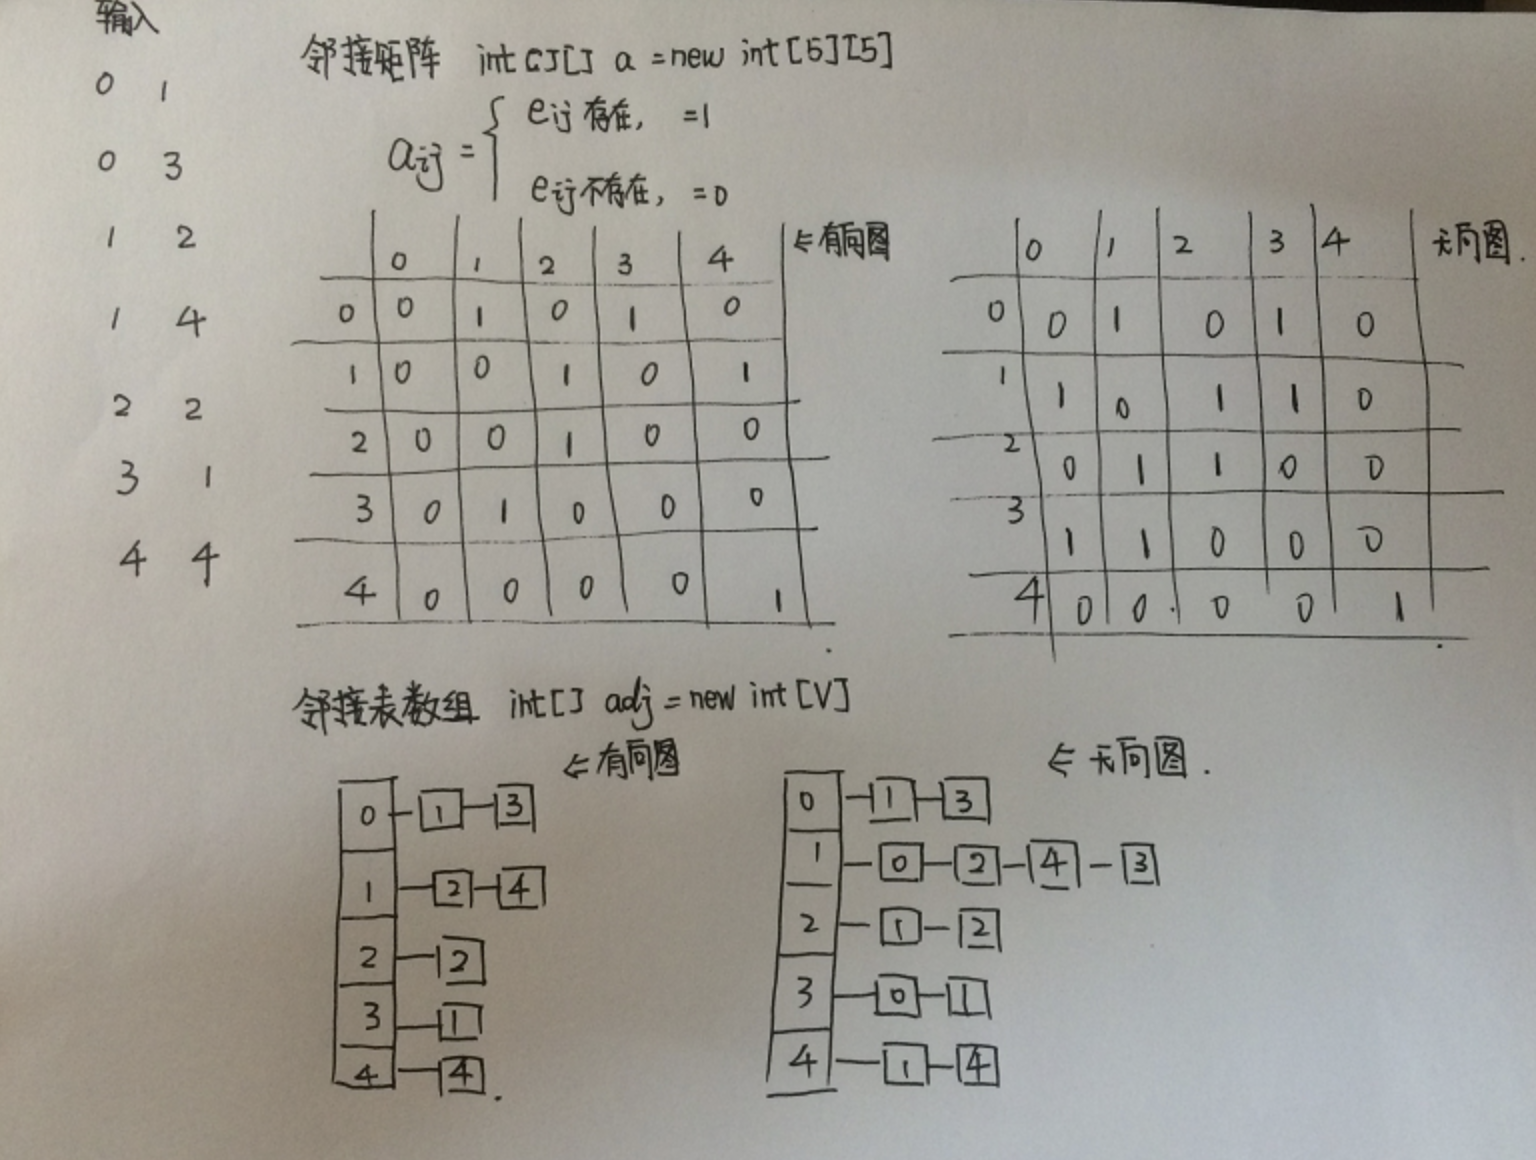 输入
0 1
0 3
1 2
1 4
2 2
3 1
4 4
邻接矩阵 int[][] a = new int[5][5]
aij = { eij 存在, =1
eij 不存在, =0
0 1 2 3 4 ← 有向图
0 0 1 0 1 0
1 0 0 1 0 1
2 0 0 1 0 0
3 0 1 0 0 0
4 0 0 0 0 1
0 1 2 3 4 无向图.
0 0 1 0 1 0
1 1 0 1 1 0
2 0 1 1 0 0
3 1 1 0 0 0
4 0 0 0 0 1
邻接表数组 int[] adj = new int[V]
← 有向图
0 1 3
1 2 4
2 2
3 1
4 4
← 无向图.
0 1 3
1 0 2 4 3
2 1 2
3 0 1
4 1 4